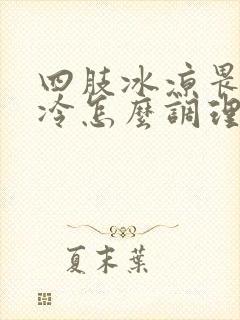 四肢冰凉畏
冷怎麼調理
夏末葉